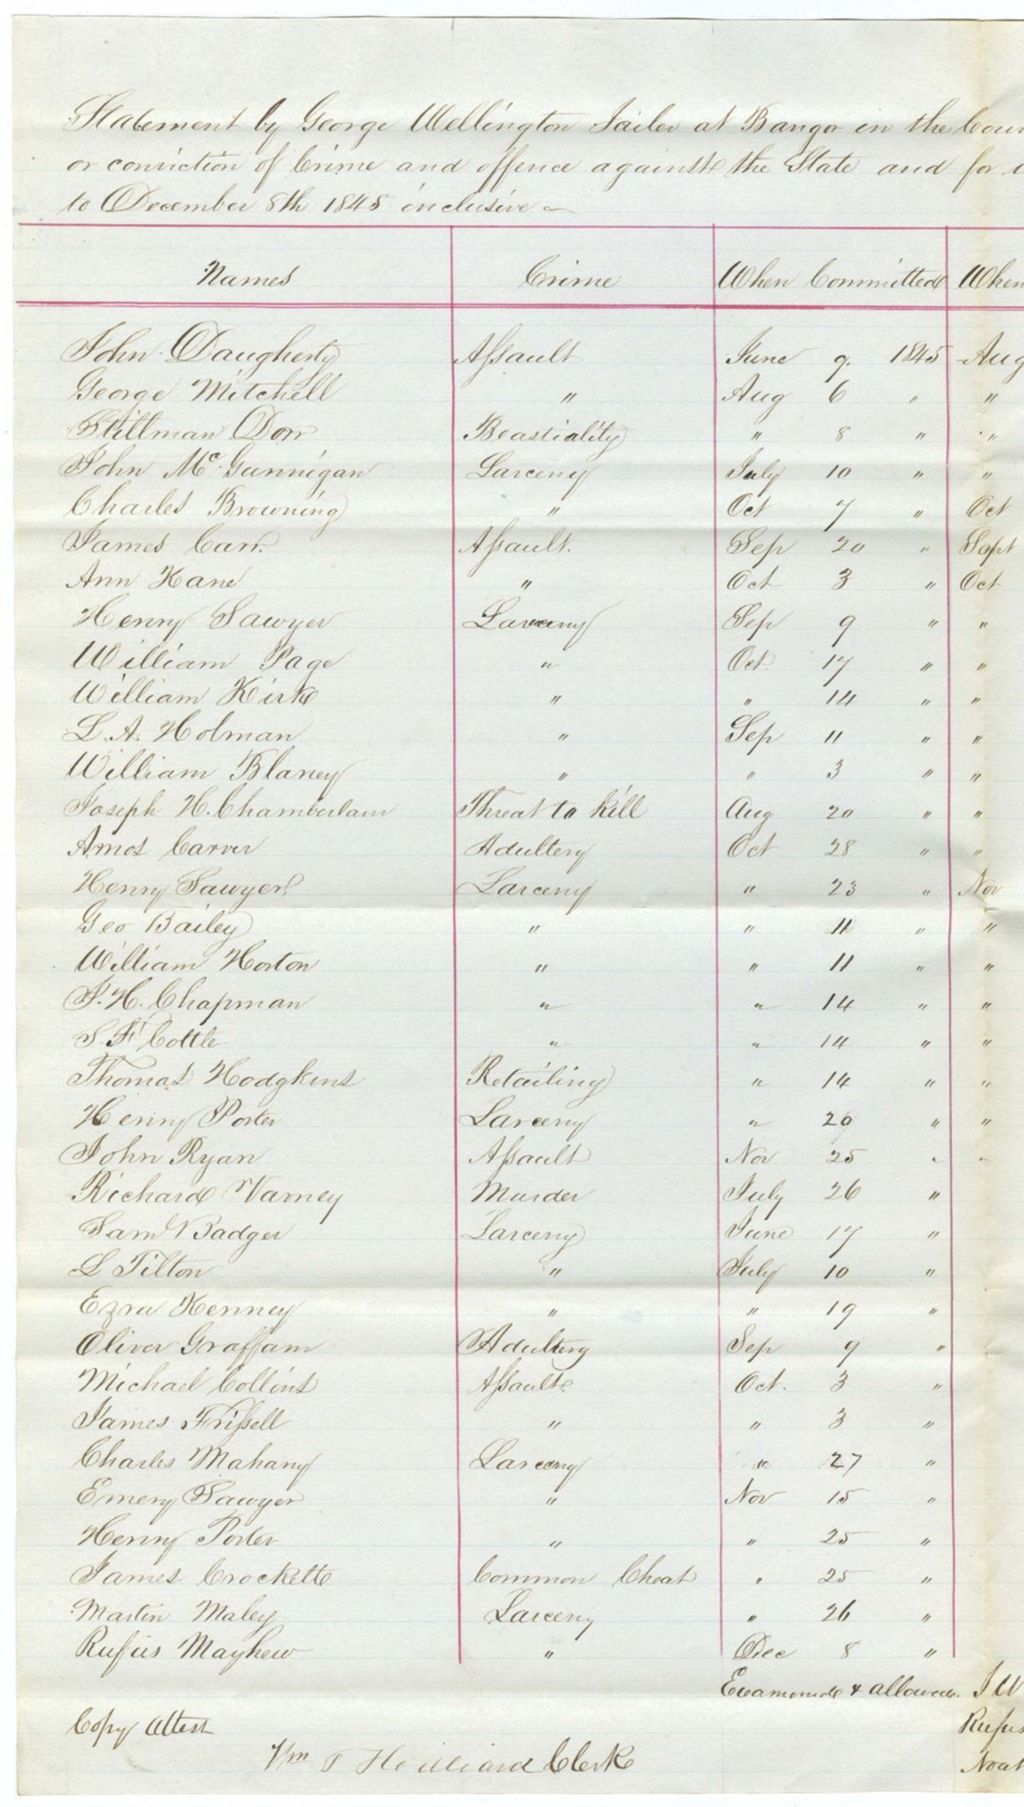 Statement by George Wellington Jailer at Bangor in the Coun
or conviction of Crime and offence against the State and for
to December 8th 1845 inclusive
Names Crime When Committed When
John Daugherty Assault June 9. 1845 Aug
George Mitchell " Aug 6 " "
Stillman Dorr Beastiality " 8 " "
John McGunnigan Larceny July 10 " "
Charles Browning " Oct 7 " Oct
James Carr Assault. Sep 20 " Sept
Ann Kane " Oct 3 " Oct
Henry Sawyer Larceny Sep 9 " "
William Page " Oct 17 " "
William Kirk " " 14 " "
L.A. Holman " Sep 11 " "
William Blaney " " 3 " "
Joseph H. Chamberlain Threat to Kill Aug 20 " "
Amos Carver Adultery Oct 28 " "
Henry Sawyer Larceny " 23 " Nov
Geo Bailey " " 11 " "
William Horton " " 11 " "
J. H. Chapman " " 14 " "
S. F. Cottle " " 14 " "
Thomas Hodgkins Retailing " 14 " "
Henry Porter Larceny " 20 " "
John Ryan Assault Nov 25 " "
Richard Varney Murder July 26 "
Sam Badger Larceny June 17 "
L Tilton " July 10 "
Ezra Kenney " " 19 "
Oliver Graffam Adultery Sep 9 "
Michael Collins Assault Oct. 3 "
James Frissell " " 3 "
Charles Mahany Larceny " 27 "
Emery Sawyer " Nov 15 "
Henry Porter " " 25 "
James Crockett Common Cheat " 25 "
Martin Maley Larceny " 26 "
Rufus Mayhew " Dec 8 "
Examined & allowed. J W
Copy Attest Rufus
Wm T Hilliard Clerk Noah